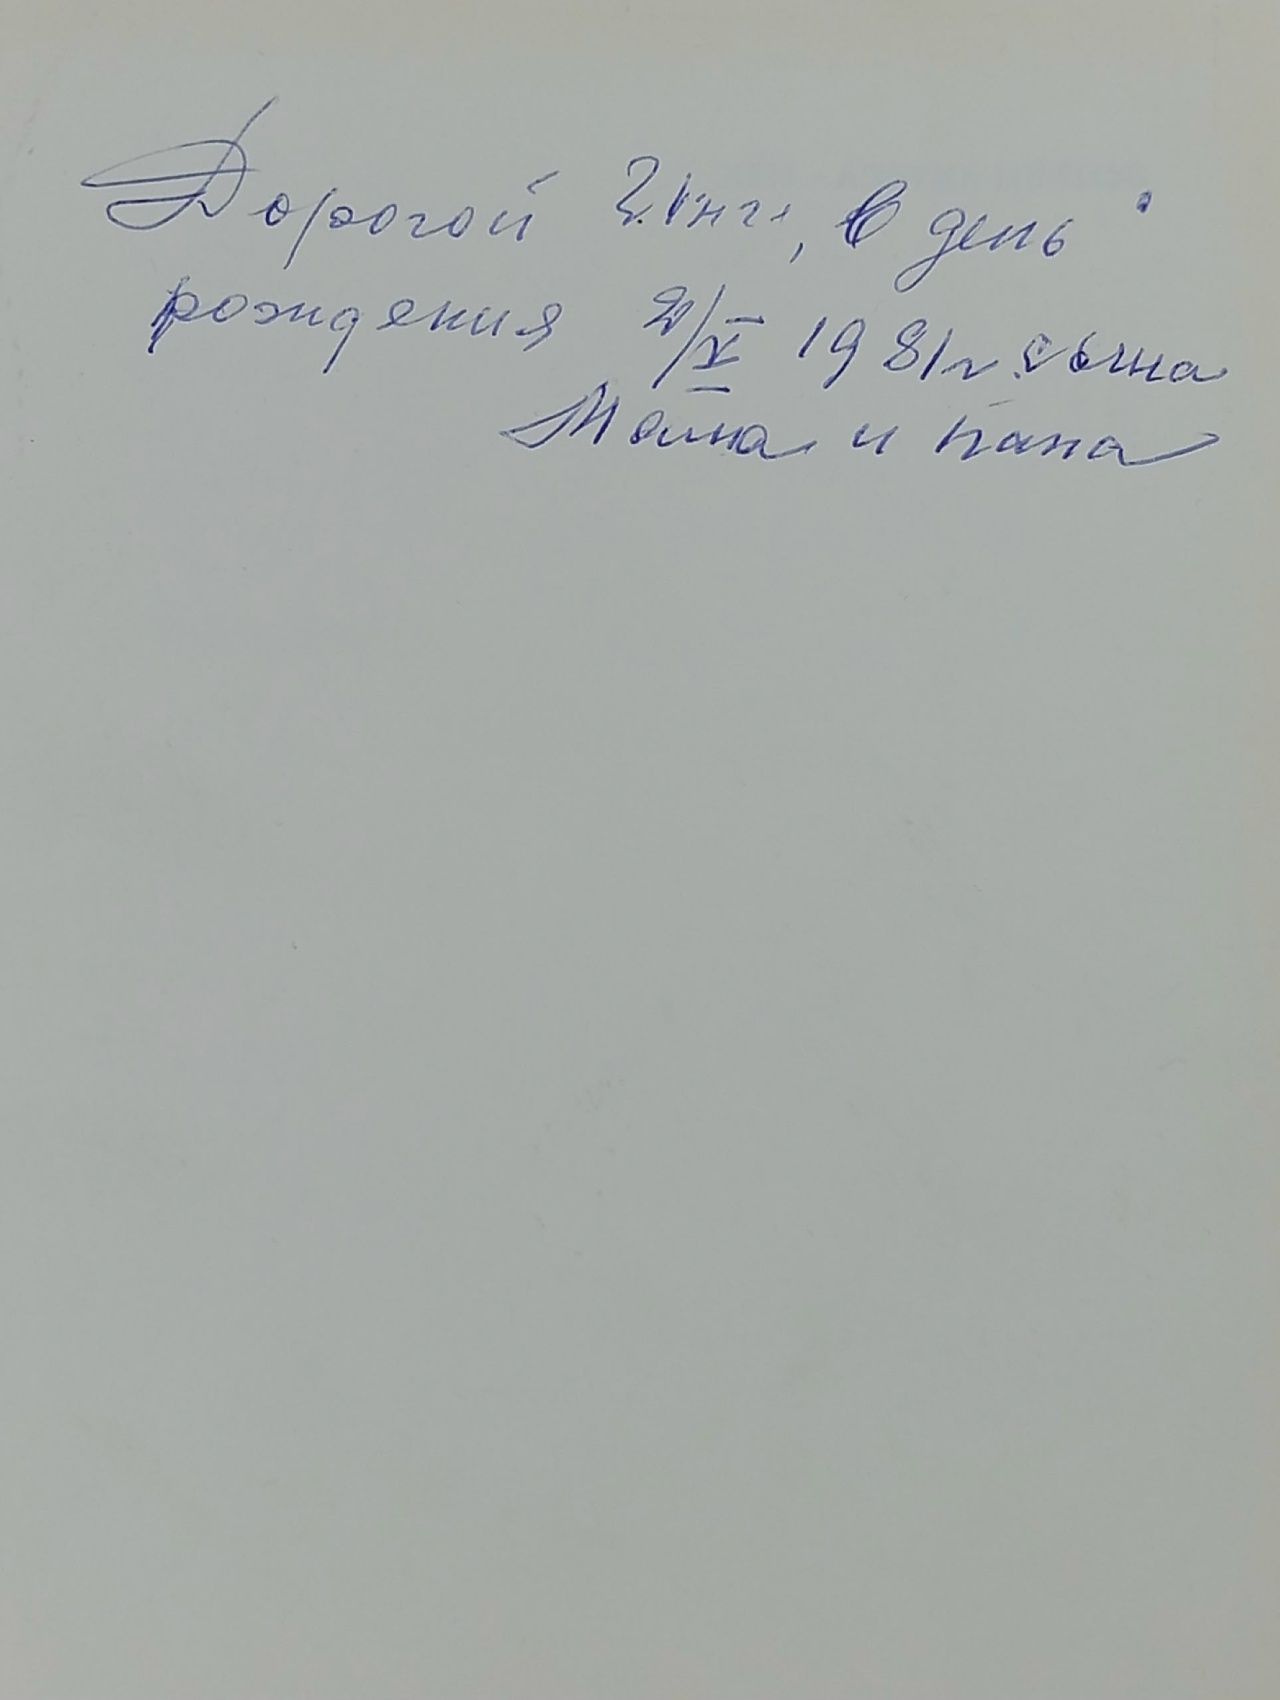 Дорогой Инне, в день
рождения 2/X 1981 г. сына
Мама и папа